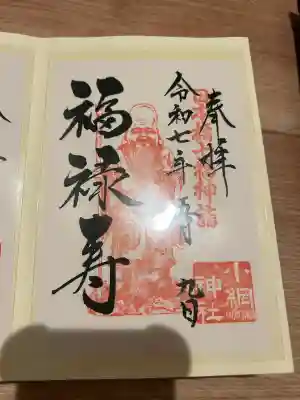 奉拝
日本橋七福神詣
令和七年五月九日
福禄寿
小網
神社